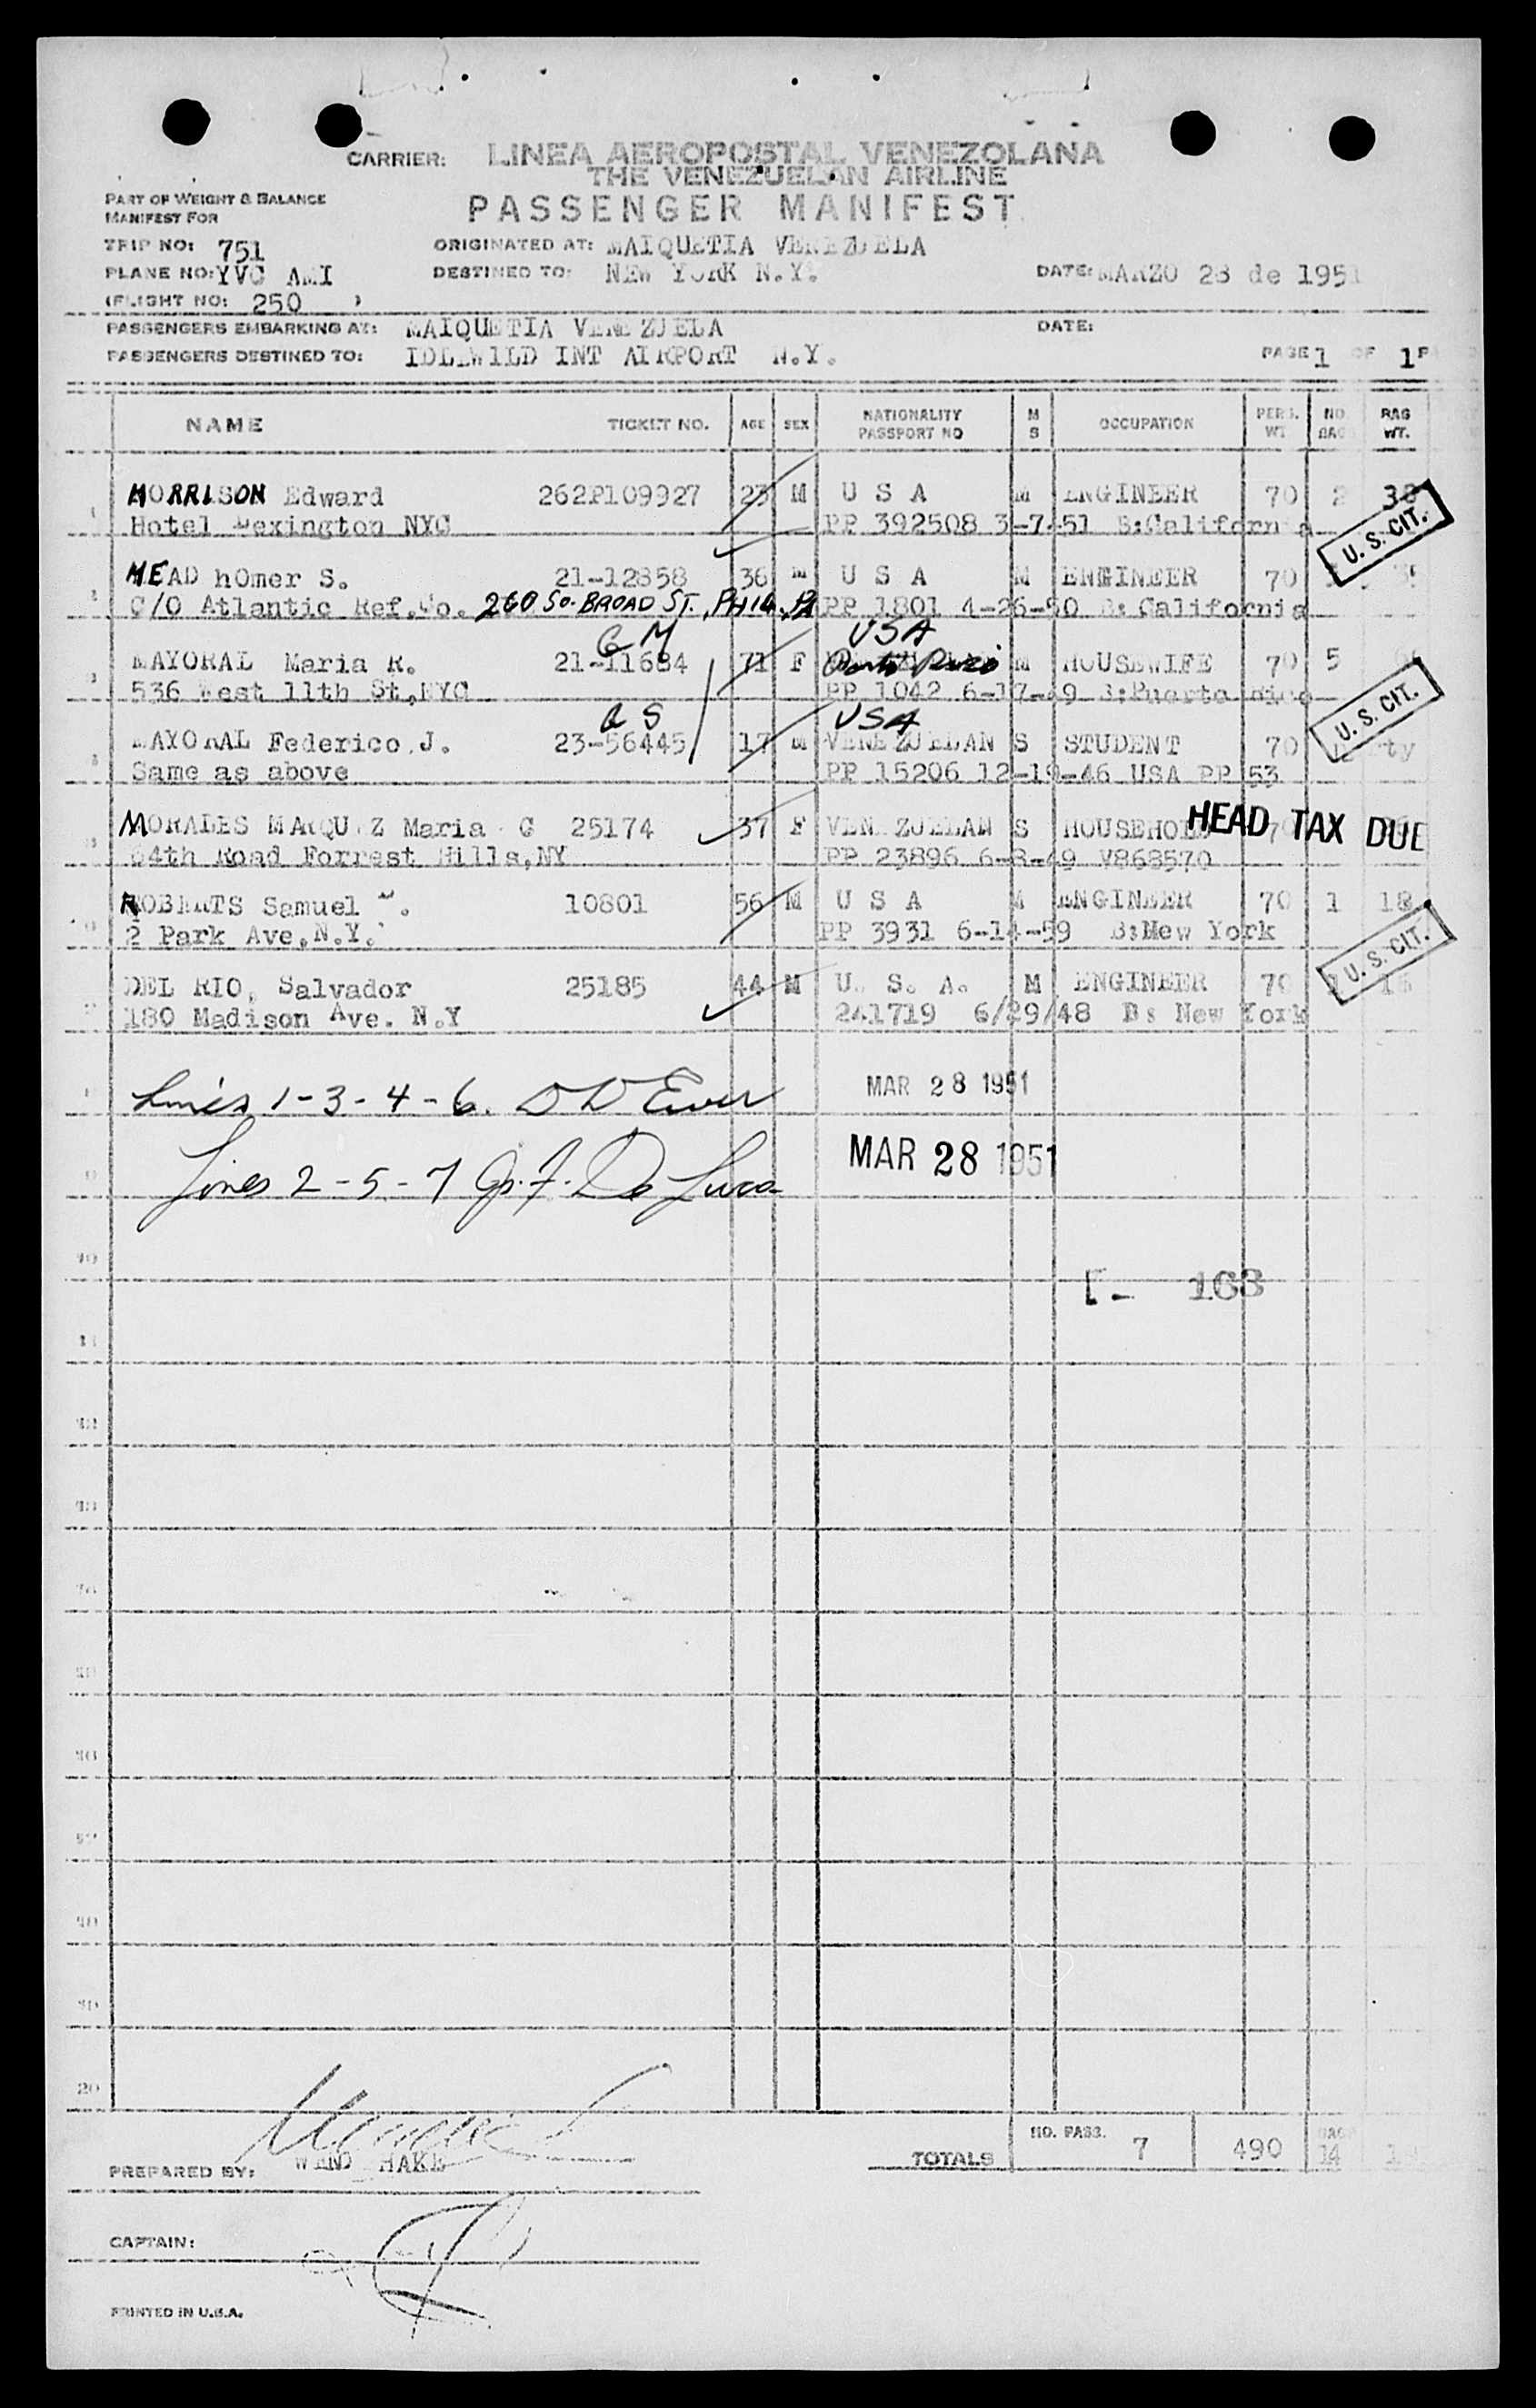 CARRIER: LINEA AEROPOSTAL VENEZOLANA
THE VENEZUELAN AIRLINE
PART OF WEIGHT & BALANCE
MANIFEST FOR
PASSENGER MANIFEST
TRIP NO: 751 ORIGINATED AT: MAIQUETIA VENEZUELA
PLANE NO: YVC AMI DESTINED TO: NEW YORK N.Y. DATE: MARZO 28 de 1951
(FLIGHT NO: 250 )
PASSENGERS EMBARKING AT: MAIQUETIA VENEZUELA DATE:
PASSENGERS DESTINED TO: IDLEWILD INT AIRPORT N.Y. PAGE 1 OF 1
NAME TICKET NO. AGE SEX NATIONALITY PASSPORT NO M S OCCUPATION PERS. WT NO BAGS BAG WT.
1 MORRISON Edward 262P109927 23 M U S A M ENGINEER 70 2 38
Hotel Lexington NYC PP 392508 3-7-51 B:California
U. S. CIT.
2 MEAD hOmer S. 21-12858 36 M U S A M ENGINEER 70
C/O Atlantic Ref. Co. 260 SO. BROAD ST., PHIL., PA PP 1801 4-26-50 B: California
G M USA
3 MAYORAL Maria R. 21-11684 71 F M HOUSEWIFE 70 5
536 West 11th St,NYC PP 1042 6-17-49 B:Puerto Rico
U. S. CIT.
G S USA
MAYORAL Federico J. 23-56445 17 M VENEZUELAN S STUDENT 70
Same as above PP 15206 12-19-46 USA PP 53
MORALES MARQUEZ Maria G 25174 37 F VENEZUELAN S HOUSEHOLD HEAD TAX DUE
64th Road Forrest Hills,NY PP 23896 6-8-49 V868570
ROBERTS Samuel 10801 56 M U S A M ENGINEER 70 1 18
2 Park Ave,N.Y. PP 3931 6-14-59 B:New York
U. S. CIT.
DEL RIO, Salvador 25185 44 M U. S. A. M ENGINEER 70
180 Madison Ave. N.Y 241719 6/29/48 B: New York
Lines 1-3-4-6. MAR 28 1951
Lines 2-5-7 De Luca MAR 28 1951
10
163
11
12
13
14
15
16
17
18
19
20
TOTALS NO. PASS. 7 490 BAGS 14
PREPARED BY: HAKE
CAPTAIN:
PRINTED IN U.S.A.